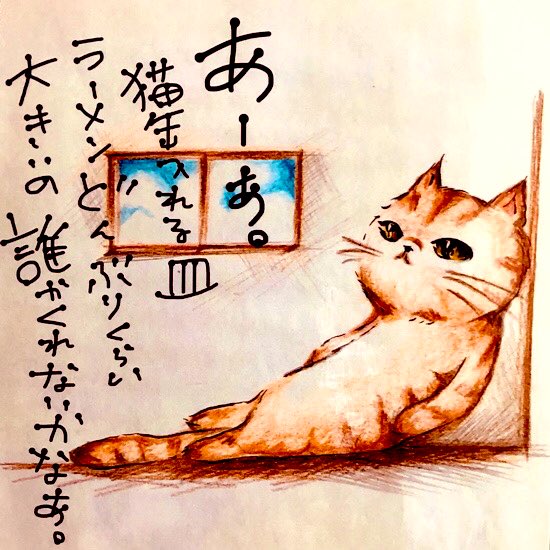 あーあ。
猫缶入れる皿
ラーメンどんぶりくらい
大きいの誰かくれないかなあ。